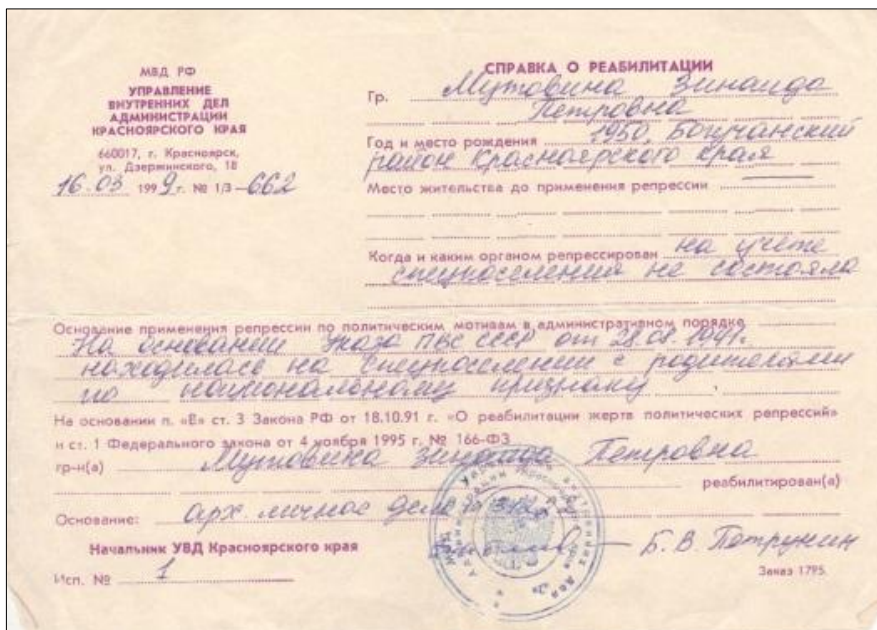 МВД РФ
УПРАВЛЕНИЕ
ВНУТРЕННИХ ДЕЛ
АДМИНИСТРАЦИИ
КРАСНОЯРСКОГО КРАЯ
660017, г. Красноярск,
ул. Дзержинского, 18
16.03 1999 г. № 1/3-662
СПРАВКА О РЕАБИЛИТАЦИИ
Гр. Мутовина Зинаида
Петровна
Год и место рождения 1950, Богучанский
район Красноярского края
Место жительства до применения репрессии
Когда и каким органом репрессирован на учете
спецпоселения не состояла
Основание применения репрессии по политическим мотивам в административном порядке
На основании Указа ПВС СССР от 28.08.1941г.
находилась на спецпоселении с родителями
по национальному признаку
На основании п. «Е» ст. 3 Закона РФ от 18.10.91 г. «О реабилитации жертв политических репрессий»
и ст. 1 Федерального закона от 4 ноября 1995 г. № 166-ФЗ
гр-н(а) Мутовина Зинаида Петровна
реабилитирован(а)
Основание: арх. личное дело
Начальник УВД Красноярского края
Б. В. Петрунин
Исп. № 1
Заказ 1795.